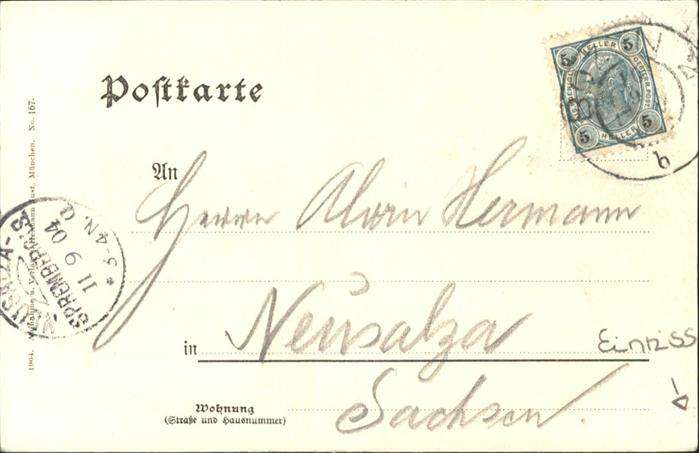 Postkarte
5 HELLER 5
5 HELLER 5
b
An
Herrn Alwin Hermann
NEUSALZA-
SPREMBERG
11 9 04
* 3-4 N.
in Neusalza
Einriss
Sachsen.
Wohnung
(Straße und Hausnummer)
1904. München. No. 167.